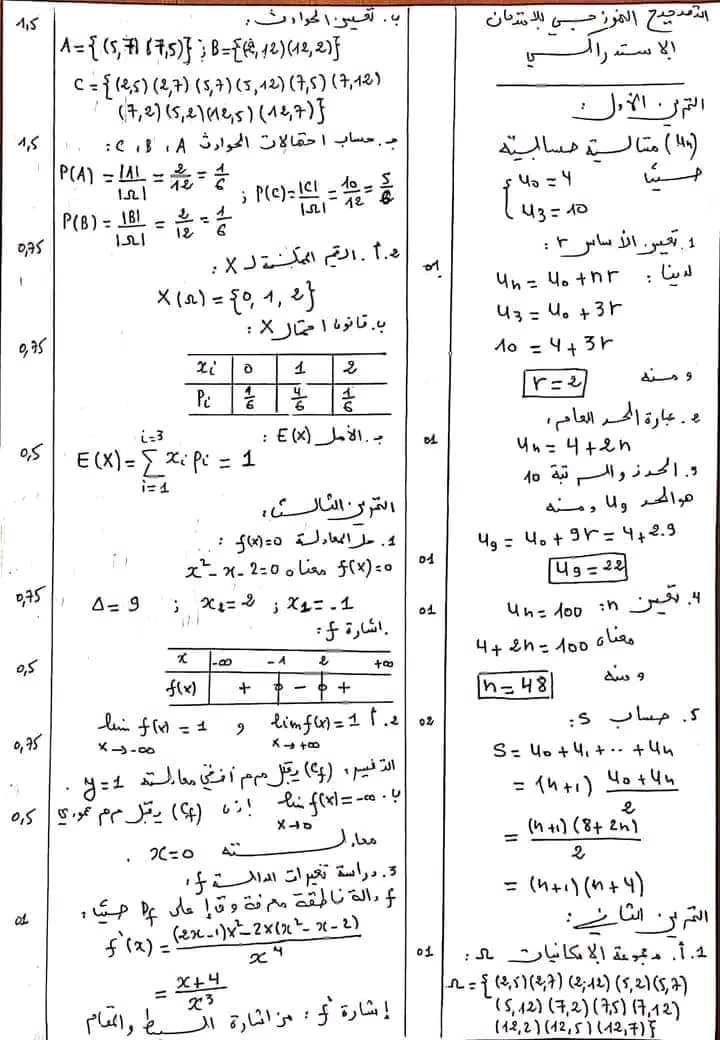 التصحيح النموذجي للامتحان
الاستدراكي
التمرين الأول:
(Un) متتالية حسابية
حيث
U0 = 4
U3 = 10
1. تعيين الأساس r:
لدينا: Un = U0 + nr
01
U3 = U0 + 3r
10 = 4 + 3r
ومنه r = 2
2. عبارة الحد العام:
Un = 4 + 2n
01
3. الحد ذو الرتبة 10
هو الحد U9 ومنه
U9 = U0 + 9r = 4 + 2.9
U9 = 22
01
4. تعيين n: Un = 100
01
معناه 4 + 2n = 100
ومنه n = 48
5. حساب S:
02
S = U0 + U1 + ... + Un
= (n+1) (U0 + Un)/2
= (n+1)(8+2n)/2
= (n+1)(n+4)
التمرين الثاني:
1. أ. مجموعة الإمكانيات Ω:
01
Ω = {(2,5)(2,7)(2,12)(5,2)(5,7)
(5,12)(7,2)(7,5)(7,12)
(12,2)(12,5)(12,7)}
ب. تعيين الحوادث:
1,5
A = {(5,7)(7,5)} ; B = {(2,12)(12,2)}
C = {(2,5)(2,7)(5,7)(5,12)(7,5)(7,12)
(7,2)(5,2)(12,5)(12,7)}
جـ. حساب احتمالات الحوادث A، B، C:
1,5
P(A) = |A|/|Ω| = 2/12 = 1/6
; P(C) = |C|/|Ω| = 10/12 = 5/6
P(B) = |B|/|Ω| = 2/12 = 1/6
2. أ. القيم الممكنة لـ X:
0,75
X(Ω) = {0, 1, 2}
ب. قانون احتمال X:
0,75
xi 0 1 2
Pi 1/6 4/6 1/6
جـ. الأمل E(X):
0,5
E(X) = Σ i=1 i=3 xi pi = 1
التمرين الثالث:
1. حل المعادلة f(x)=0:
f(x)=0 معناه x² - x - 2 = 0
0,75
Δ = 9 ; x2 = 2 ; x1 = -1
. اشارة f:
0,5
x -∞ -1 2 +∞
f(x) + 0 - 0 +
2. أ lim f(x) = 1 x→+∞ و lim f(x) = 1 x→-∞
0,75
التفسير: (Cf) يقبل م م م أفقي معادلته y=1.
ب. lim f(x) = -∞ x→0 إذن (Cf) يقبل م م عمودي
0,5
معادلته x=0.
3. دراسة تغيرات الدالة f:
f دالة ناطقة معرفة و ق إ على Df حيث:
01
f'(x) = ((2x-1)x² - 2x(x² - x - 2))/x⁴
= (x+4)/x³
إشارة f': من اشارة البسط والمقام